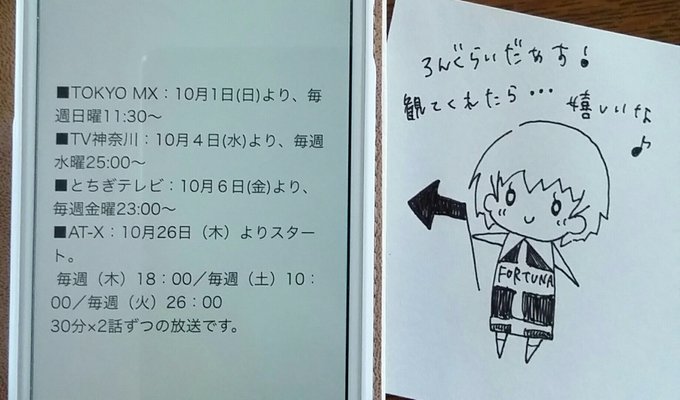 ■TOKYO MX：10月1日(日)より、毎
週日曜11:30〜
■TV神奈川：10月４日(水)より、毎週
水曜25:00〜
■とちぎテレビ：10月６日(金)より、
毎週金曜23:00〜
■AT-X：10月26日（木）よりスター
ト。
毎週（木）18：00／毎週（土）10：
00／毎週（火）26：00
30分×2話ずつの放送です。
ろんぐらいだぁす！
観てくれたら・・・
嬉しいな♪
FORTUNA